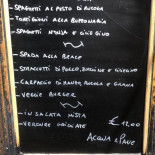 SPAGHETTI AL PESTO DI RUCOLA
PORTIGIONI ALLA BOSCAIOLA
SPAGHETTI N'DUJA E
SPADA ALLA BRACE
STRACCETTI DI POLLO, ZUCCHINE E
CARPACCIO DI MANZO, RUCOLA E GRANA
VEGGIE BURGER
INSALATA MISTA
VERDURE GRIGLIATE
€ 12,00
ACQUA E PANE